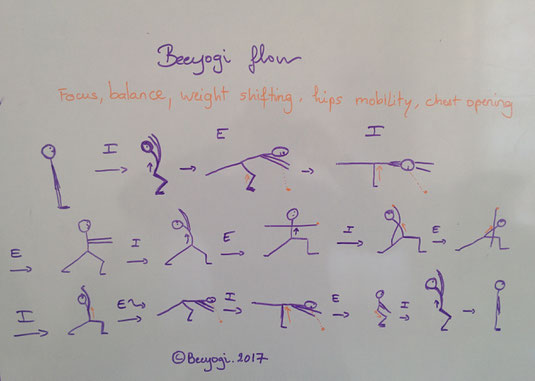 Beeyogi flow
Focus, balance, weight shifting, hips mobility, chest opening
I E I
E I E I E
I E I E I
© Beeyogi. 2017